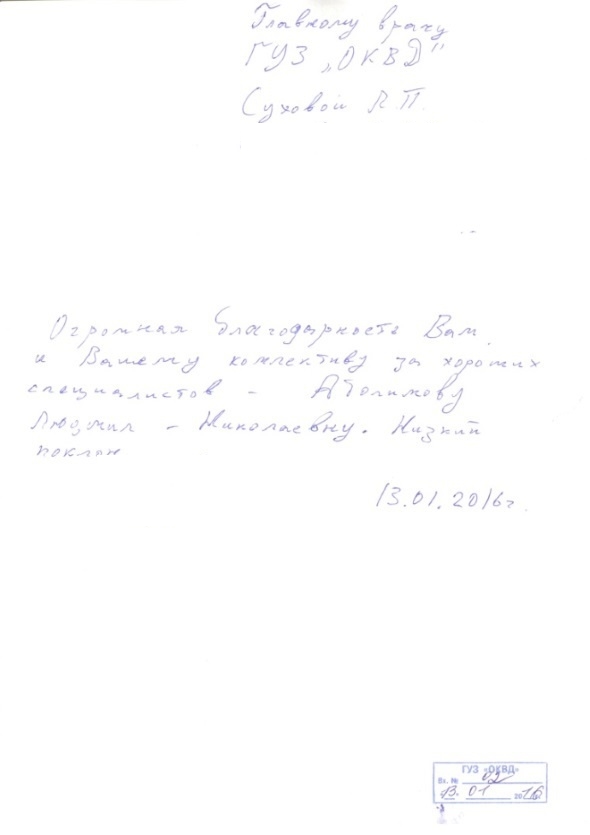 Главному врачу
ГУЗ „ОКВД"
Суховой Л.П.
Огромная благодарность Вам
и Вашему коллективу за хороших
специалистов -
Людмил - Николаевну. Низкий
поклон
13.01.2016г.
ГУЗ «ОКВД»
Вх. № 02
13. 01 2016